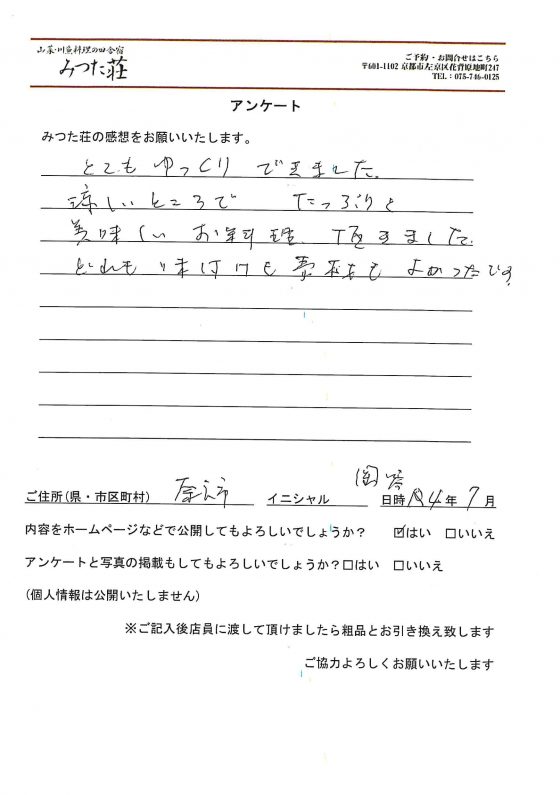 山菜・川魚料理の田舎宿
みつた荘
ご予約・お問合せはこちら
〒601-1102 京都市左京区花背原地町247
TEL：075-746-0125
アンケート
みつた荘の感想をお願いいたします。
とてもゆっくりできました。
涼しいところで たっぷりと
美味しいお料理、頂きました。
どれも味付けも素材もよかったです。
ご住所(県・市区町村) 奈良市 イニシャル 日時 R4年 7月
内容をホームページなどで公開してもよろしいでしょうか？ ☑はい □いいえ
アンケートと写真の掲載もしてもよろしいでしょうか？□はい □いいえ
(個人情報は公開いたしません)
※ご記入後店員に渡して頂けましたら粗品とお引き換え致します
ご協力よろしくお願いいたします